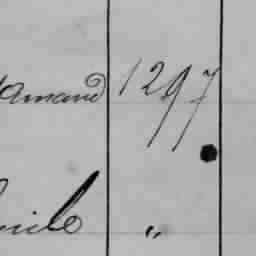 Amand 1297
mile "